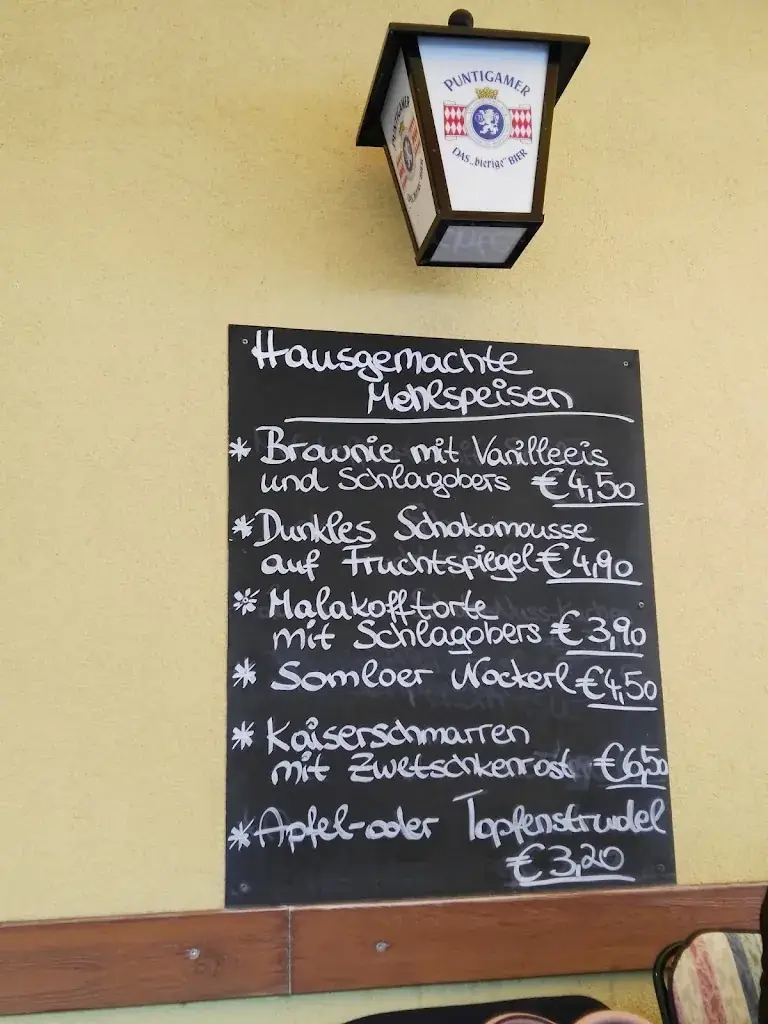 PUNTIGAMER
DAS „bierige“ BIER
Hausgemachte
Mehlspeisen
* Brownie mit Vanilleeis
und Schlagobers €4,50
* Dunkles Schokomousse
auf Fruchtspiegel €4,90
* Malakofftorte
mit Schlagobers €3,90
* Somloer Nockerl €4,50
* Kaiserschmarren
mit Zwetschkenrost €6,50
* Apfel-oder Topfenstrudel
€3,20